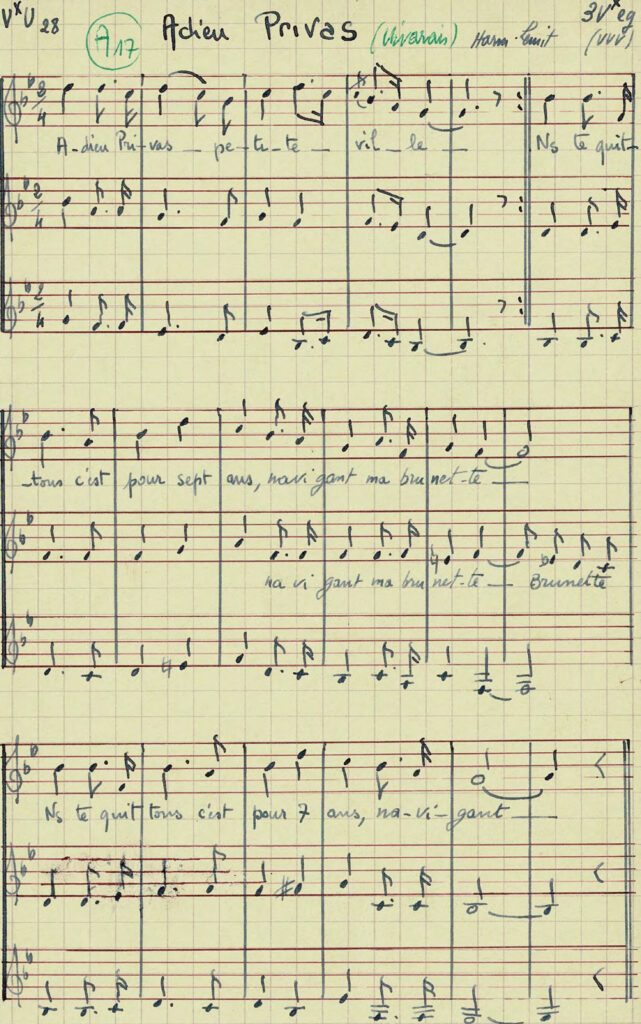 VˣU 28 A17 Adieu Privas (Vivarais) Harm. 3Vˣ eg
(VVV)
2/4
A-dieu Pri-vas pe-ti-te vil-le Ns te quit-
2/4
2/4
-tons c'est pour sept ans, navi gant ma bru net-te
na vi gant ma bru net-te Brunette
Ns te quit tons c'est pour 7 ans, na-vi-gant